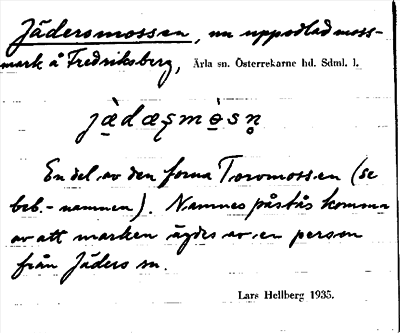 Jädersmossen, nu uppodlad moss-
mark å Fredriksberg, Ärla sn. Österrekarne hd. Sdml. l.
jæ̀dæʂmòsn̥
En del av den forna Toromossen (se
beb.-namnen). Namnet påstås komma
av att marken ägdes av en person
från Jäders sn.
Lars Hellberg 1935.